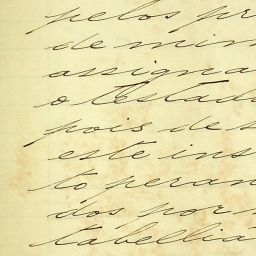 pelos pr
de min
assigna
o Testado
pois de s
este ins
to peran
dos por
tabelliã